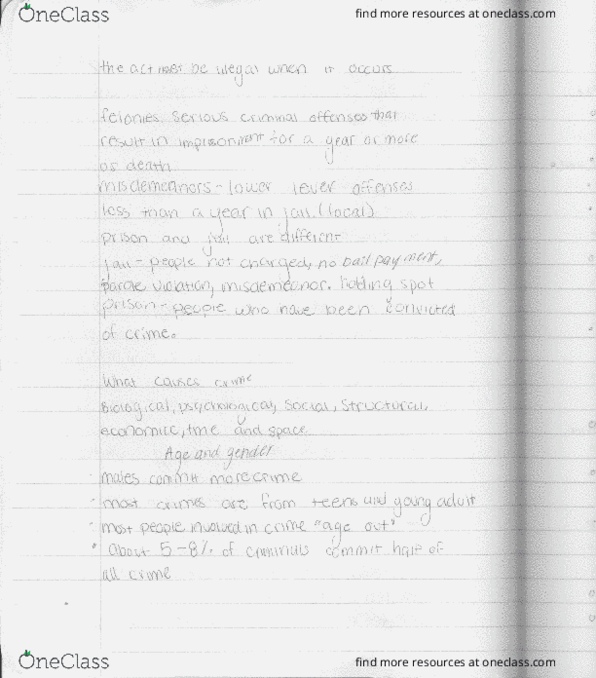 OneClass
find more resources at oneclass.com
the act must be illegal when it occurs
felonies. Serious criminal offenses that
result in imprisonment for a year or more
or death
misdemeanors - lower level offenses
less than a year in jail. (local)
prison and jail are different
jail - people not charged, no bail payment,
parole violation, misdemeanor. holding spot
prison - people who have been convicted
of crime.
What causes crime
Biological, psychological, Social, Structural,
economic, time and space
Age and gender
males commit more crime
most crimes are from teens and young adult
most people involved in crime "age out"
About 5-8% of criminals commit half of
all crime
OneClass
find more resources at oneclass.com